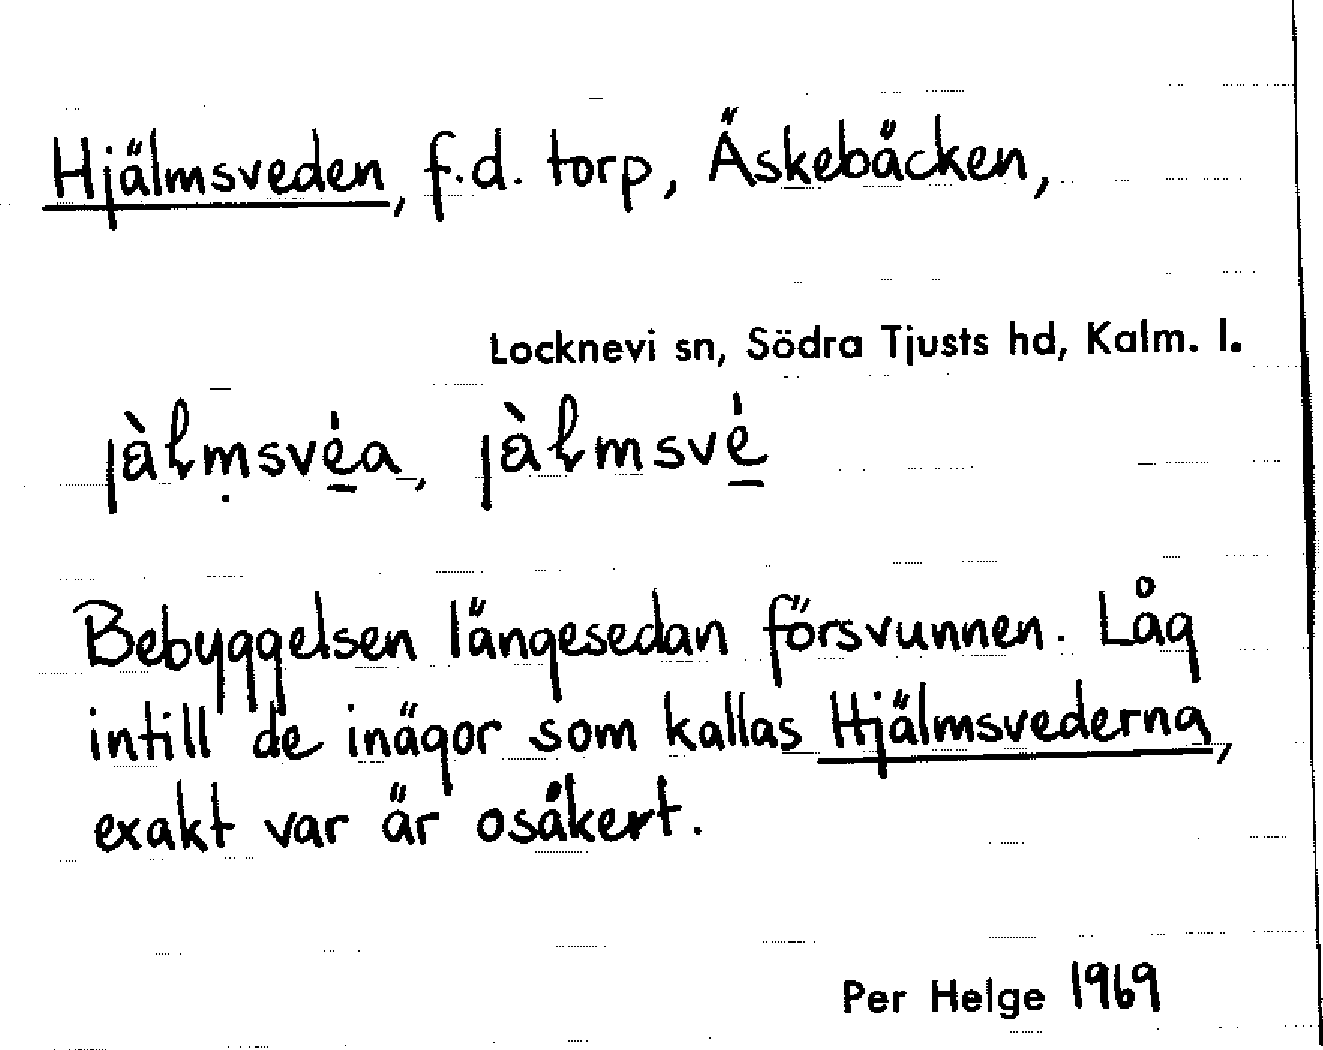 Hjälmsveden, f.d. torp, Äskebäcken,
Locknevi sn, Södra Tjusts hd, Kalm. l.
jàłmṣvé̱a, jàłmsvé̱
Bebyggelsen längesedan försvunnen. Låg
intill de inägor som kallas Hjälmsvederna,
exakt var är osäkert.
Per Helge 1969